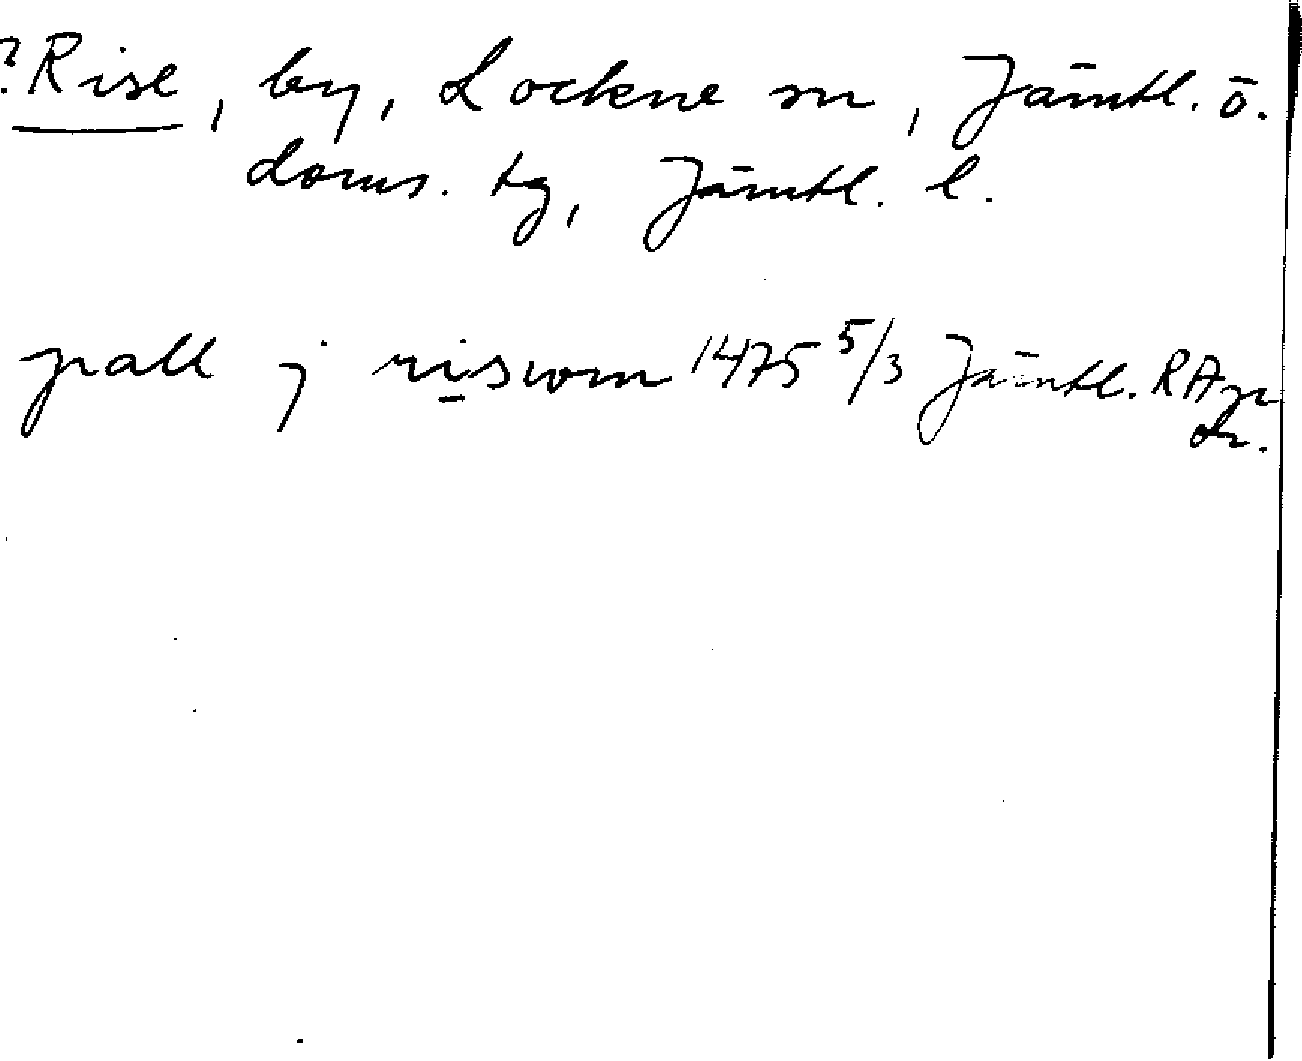 ?Rise, by, Lockne sn, Jämtl. ö.
doms. tg, Jämtl. l.
pall j riswom 1475 5/3 Jämtl. RAp
dr.